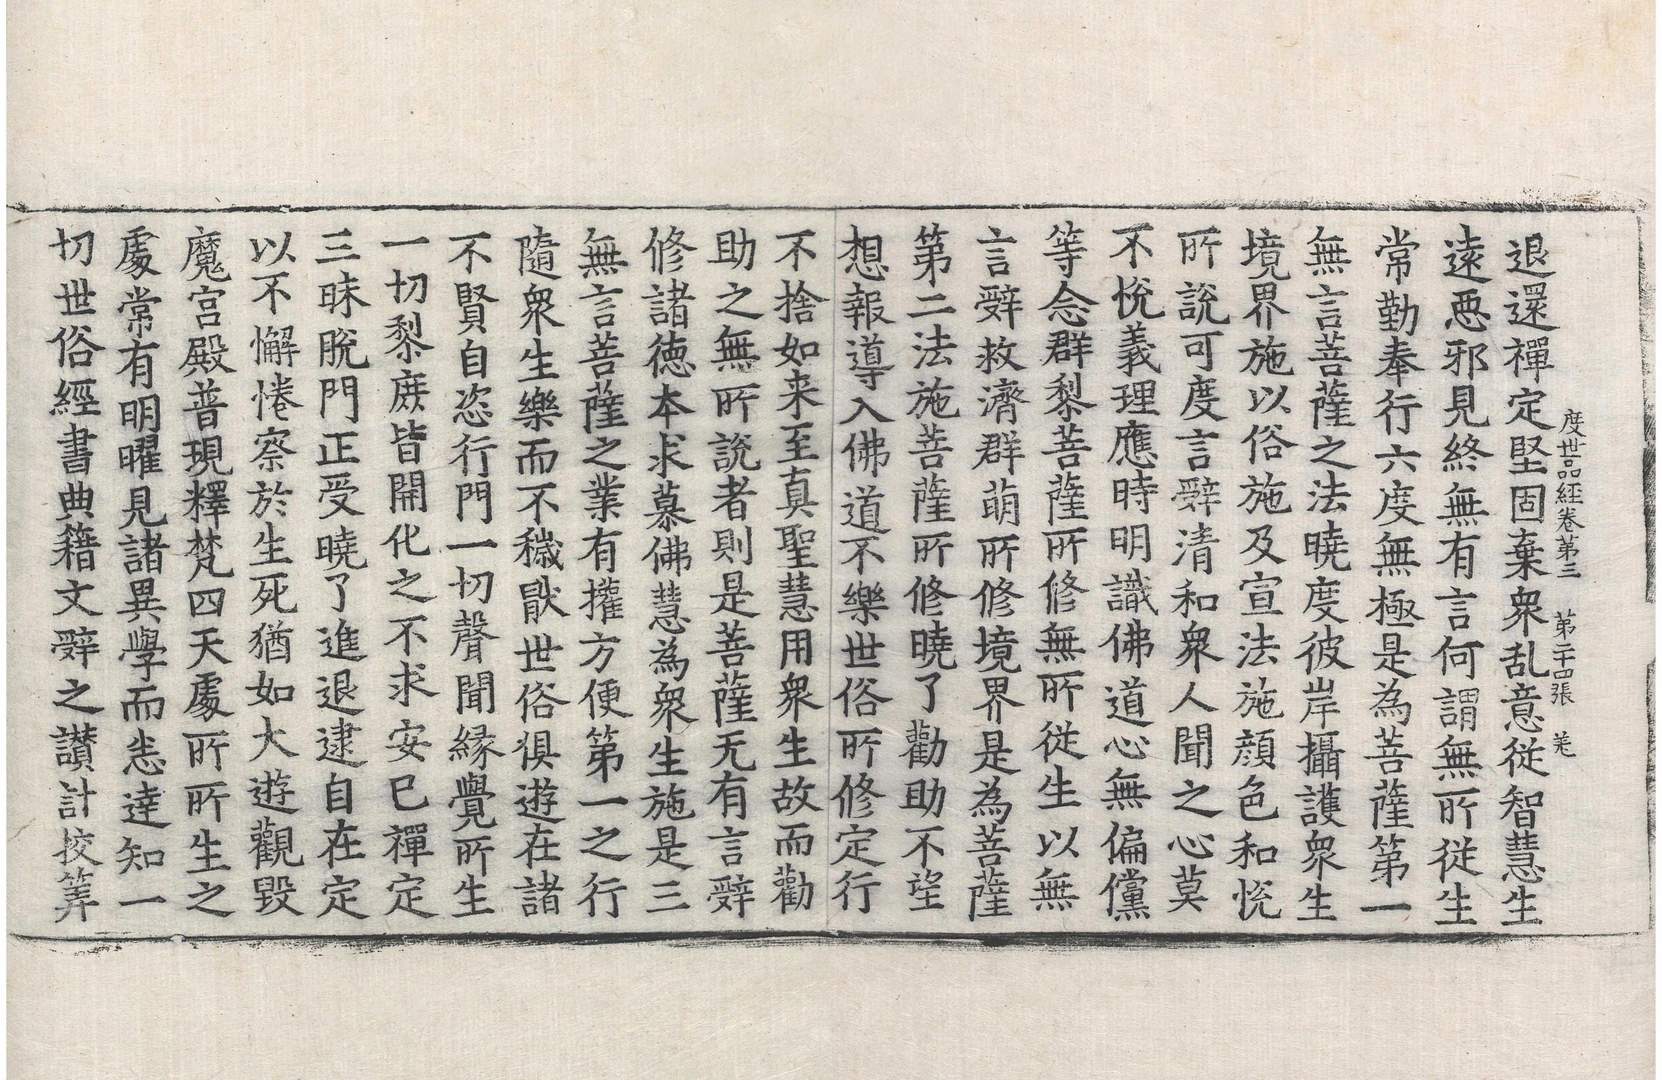 度世品經卷第三　第二十四張　㳘
退還禪定堅固棄衆乱意從智慧生
遠惡邪見終無有言何謂無所從生
常勤奉行六度無極是為菩薩第一
無言菩薩之法曉度彼岸攝護衆生
境界施以俗施及宣法施顔色和悅
所說可度言辭清和衆人聞之心莫
不悅義理應時明識佛道心無偏黨
等念群黎菩薩所修無所從生以無
言辭救濟群萌所修境界是為菩薩
第二法施菩薩所修曉了勸助不望
想報導入佛道不樂世俗所修定行
不捨如来至真聖慧用衆生故而勸
助之無所說者則是菩薩无有言辭
修諸德本求慕佛慧為衆生施是三
無言菩薩之業有權方便第一之行
隨衆生樂而不穢猒世俗俱遊在諸
不賢自恣行門一切聲聞緣覺所生
一切黎庶皆開化之不求安已禪定
三昧脫門正受曉了進退逮自在定
以不懈惓察於生死猶如大遊觀毀
魔宮殿普現釋梵四天處所所生之
處常有明曜見諸異學而恙達知一
切世俗經書典籍文辭之讃計挍筭